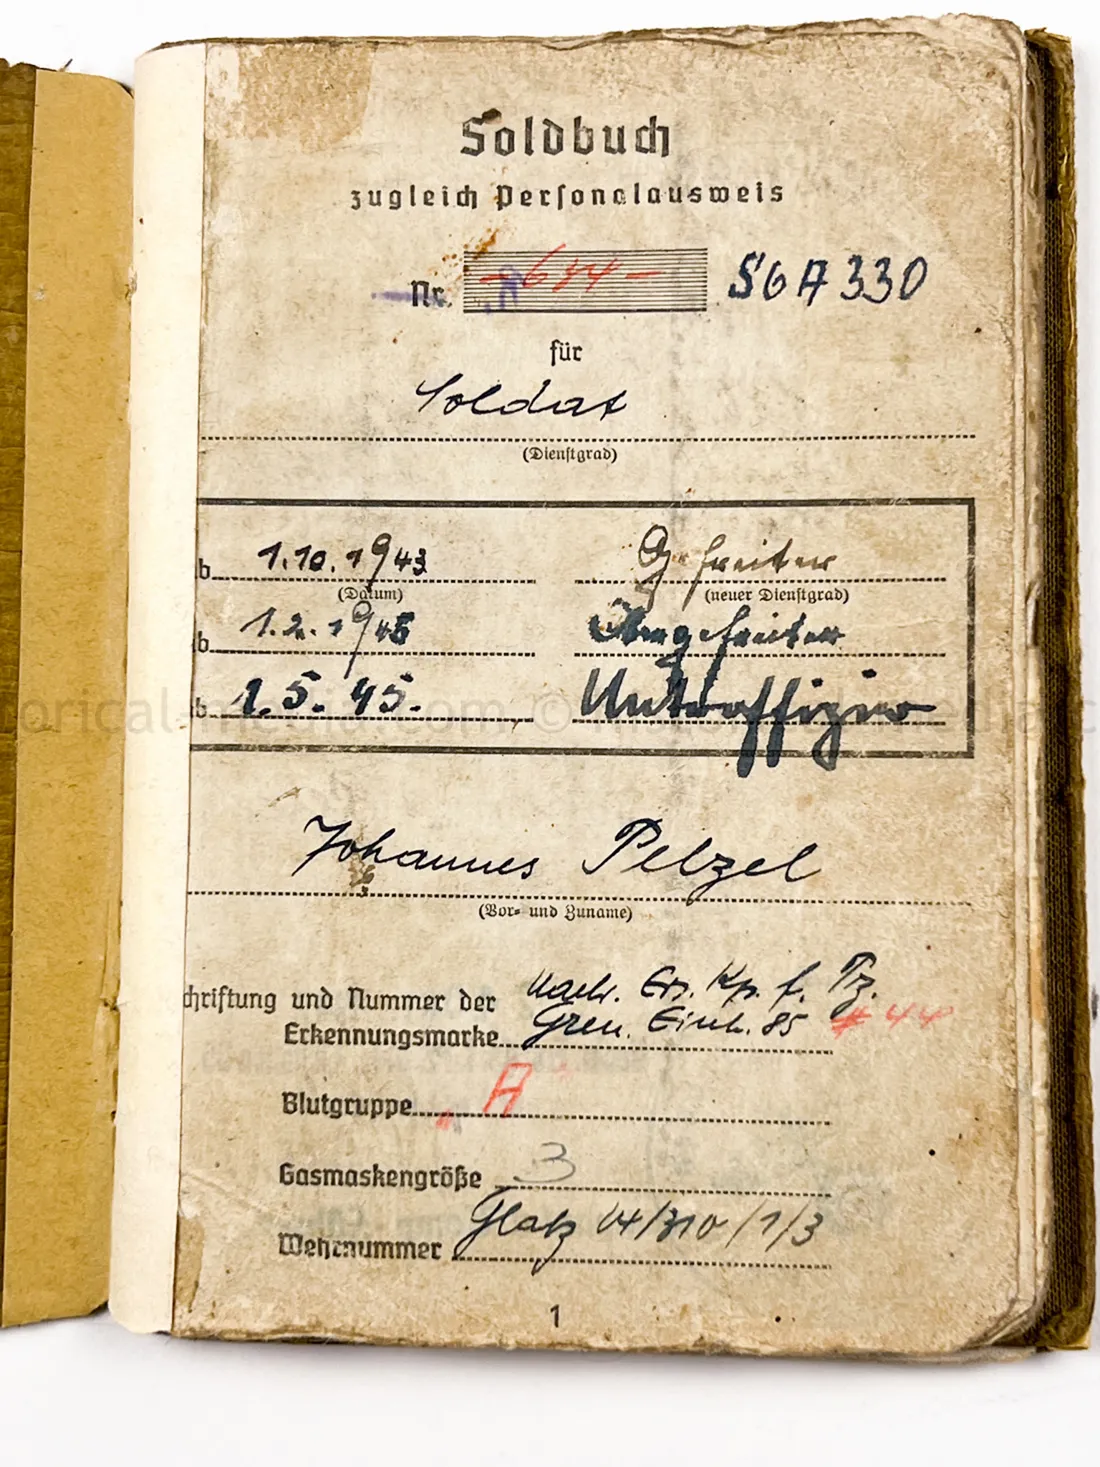 Soldbuch
zugleich Personalausweis
Nr. -634- S6A 330
für
Soldat
(Dienstgrad)
b 1.10.1943 Gefreiter
(Datum) (neuer Dienstgrad)
b 1.2.1945
b 1.5.45. Unteroffizier
Johannes Pelzel
(Vor- und Zuname)
chriftung und Nummer der Nachr. Ers. Kp. f. Pz.
Erkennungsmarke Gren. Einh. 85 44
Blutgruppe A
Gasmaskengröße 3
Wehrnummer Glatz 14/310/1/3
1